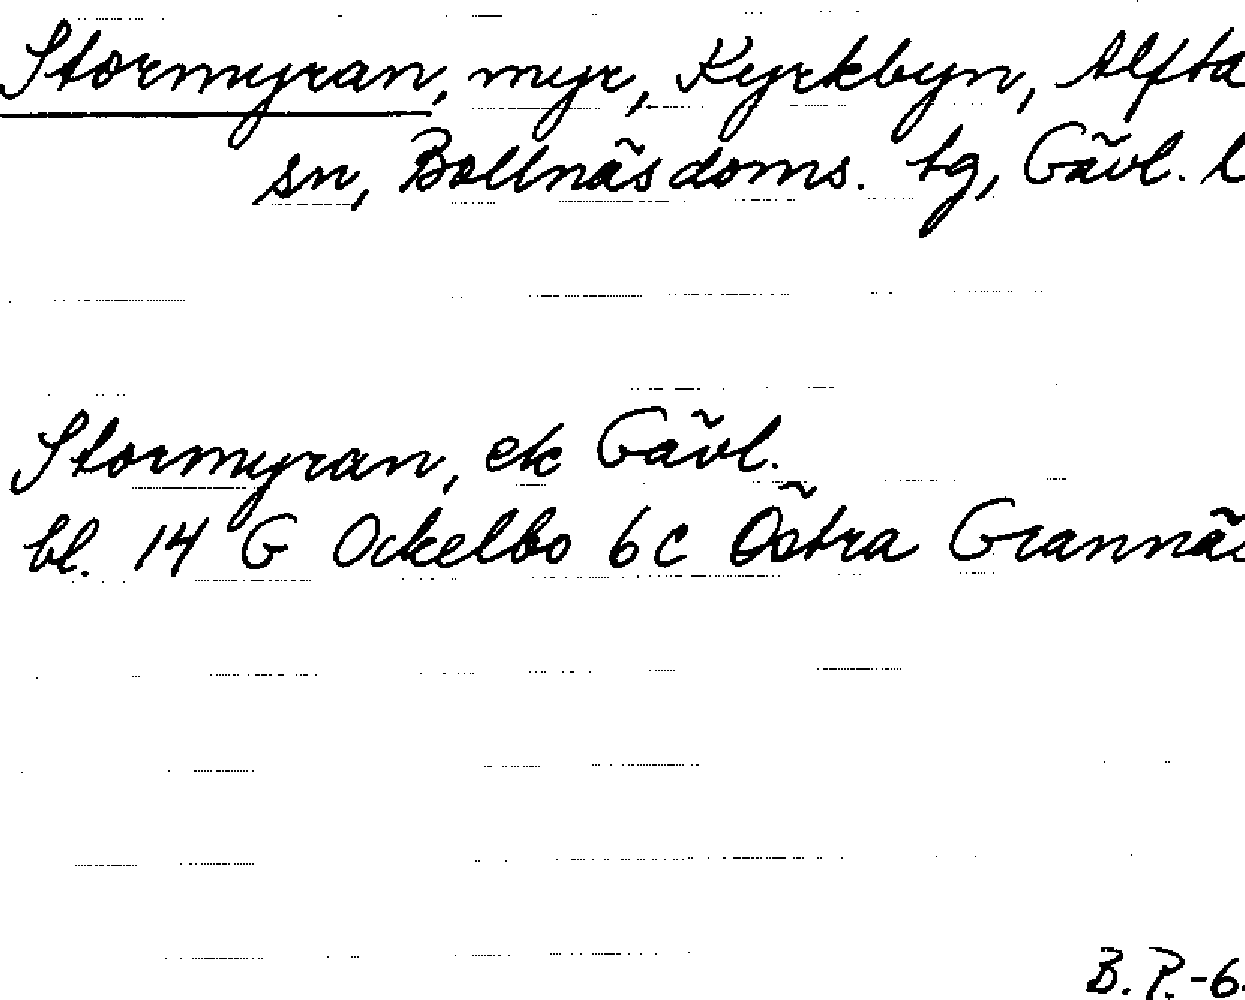 Stormyran, myr, Kyrkbyn, Alfta
sn, Bollnäs doms. tg, Gävl. l
Stormyran, ek Gävl.
bl. 14 G Ockelbo 6 c Östra Grannäs
B. P. -6.